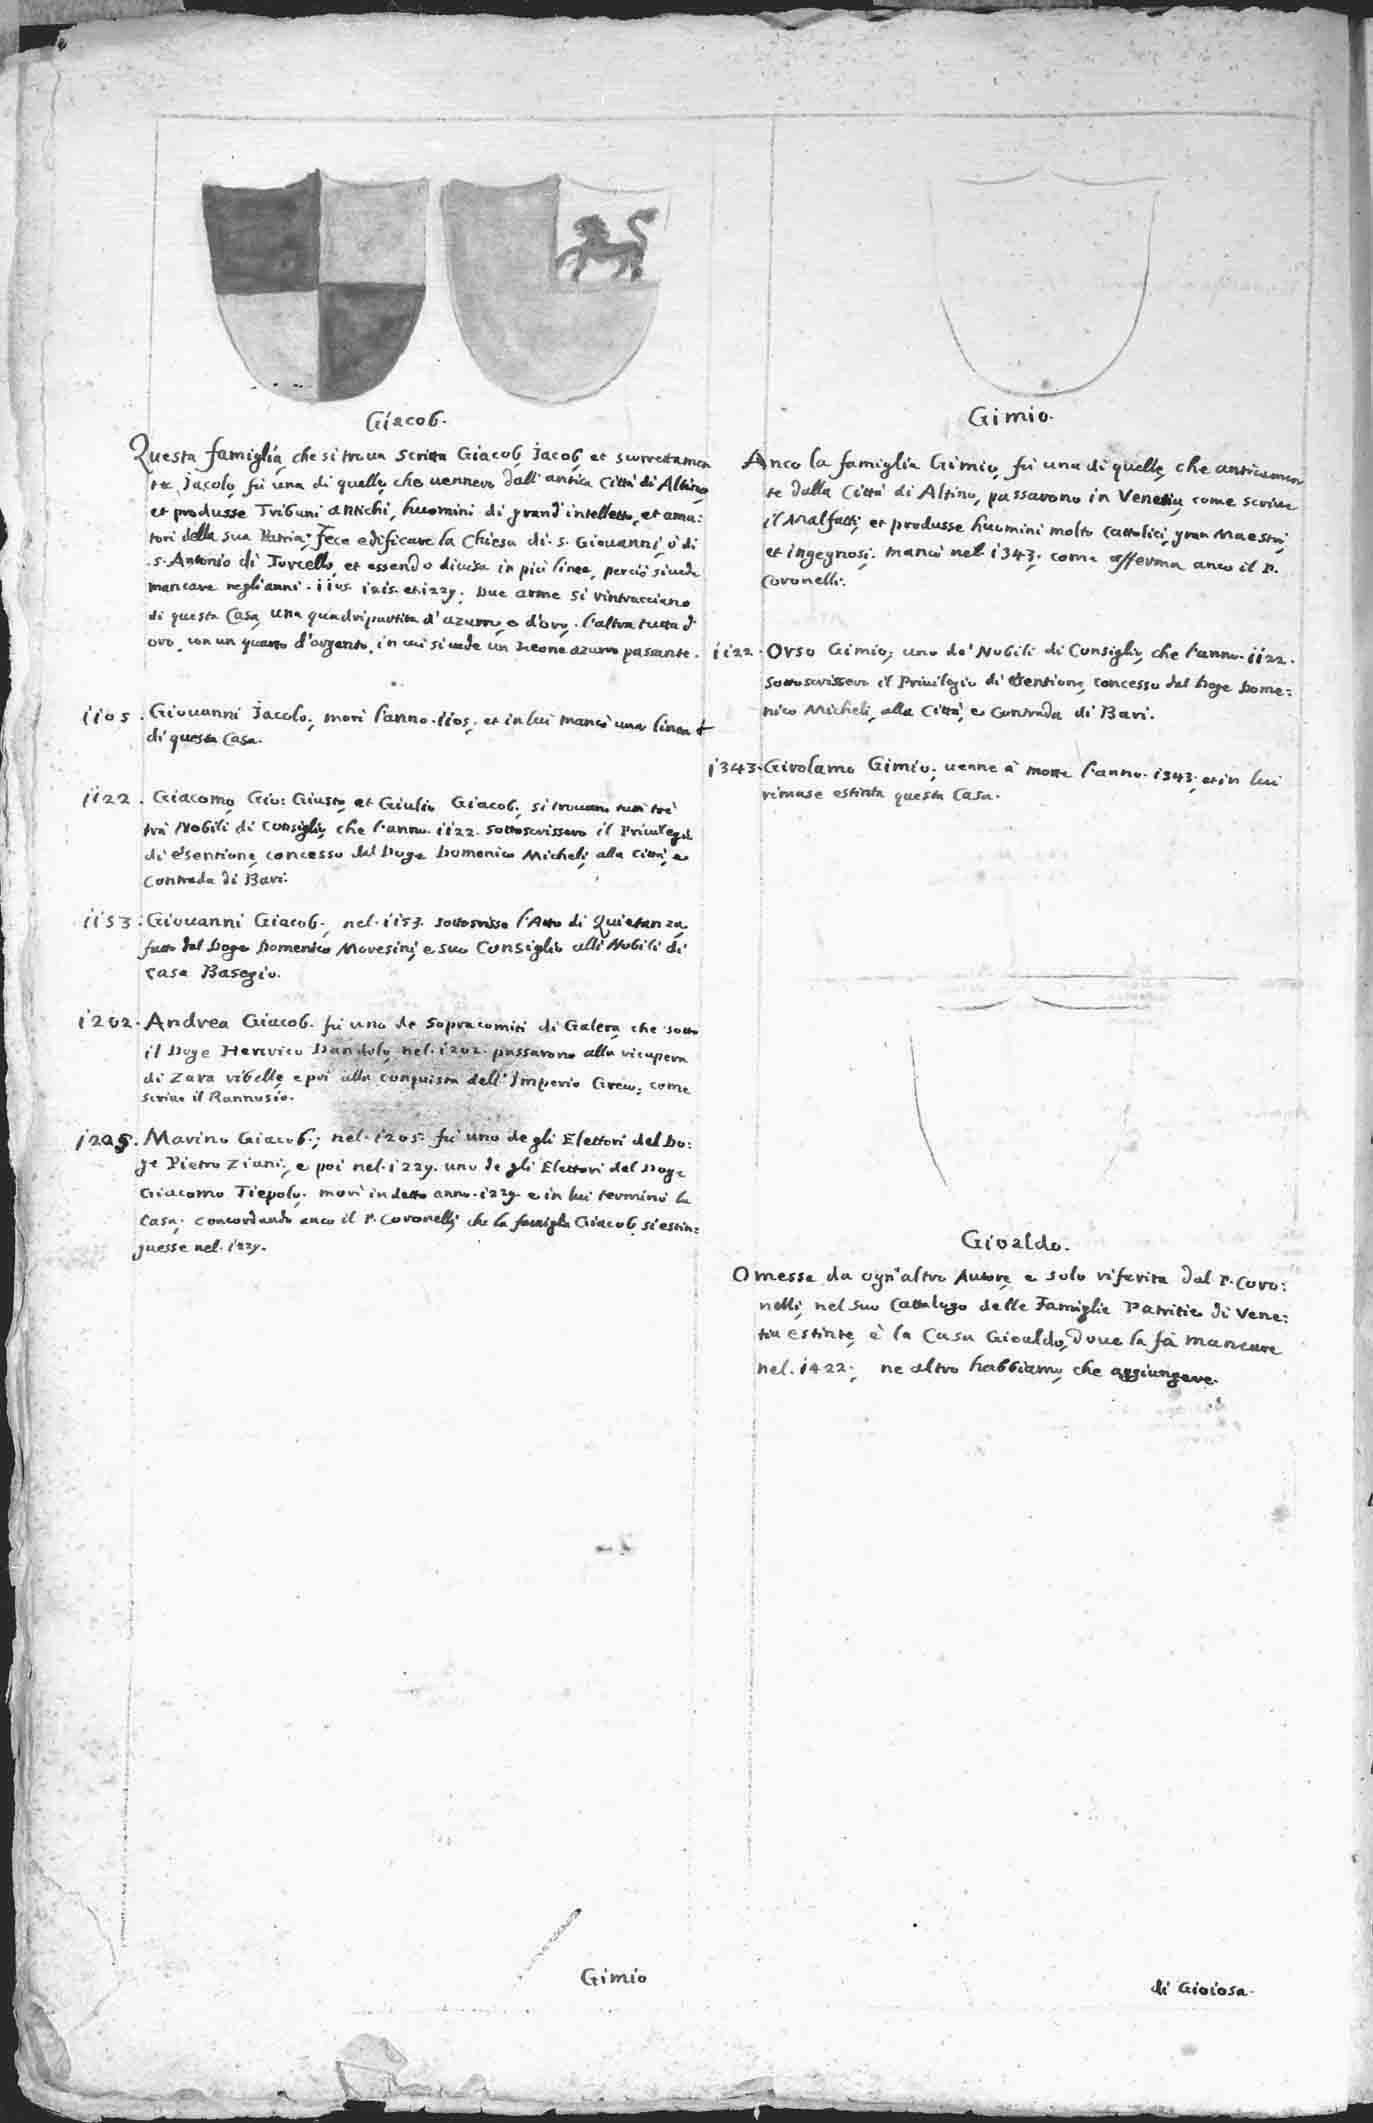 Giacob.
Questa famiglia, che si troua scritta Giacob, Jacob, et scorrettamen
te, Jacolo, fù una di quelle, che uennero dall'antica Città di Altino
et produsse Tribuni antichi, huomini di grand'intelletto, et ama:
tori della sua Patria; Fece edificare la Chiesa di S. Giouanni, ò di
S. Antonio di Torcello, et essendo diuisa in più linee, perciò si uede
mancare negli anni. 1105. 1215. et 1229. Due arme si rintracciano
di questa Casa, una quadripartita d'azurro, e d'oro. l'altra tutta d'
oro, con un quarto d'argento, in cui si uede un Leone azurro passante.
1105. Giouanni Jacolo, morì l'anno. 1105, et in lui mancò una linea
di questa Casa.
1122. Giacomo, Gio: Giusto, et Giulio Giacob, si trouano tutti trè
trà Nobili di Consiglio, che l'anno. 1122. sottoscrissero il Priuilegio
di esentione, concesso dal Doge Domenico Micheli, alla Città, e
Contrada di Bari.
1153. Giouanni Giacob, nel. 1153. sottoscrisse l'Atto di Quietanza,
fatto dal Doge Domenico Moresini, e suo Consiglio alli Nobili di
Casa Basegio.
1202. Andrea Giacob. fù uno de Sopracomiti di Galera, che sotto
il Doge Henrico Dandolo, nel. 1202. passarono alla ricupera
di Zara ribelle, e poi alla conquista dell'Imperio Greco; come
scriue il Rannusio.
1205. Marino Giacob; nel. 1205. fù uno de gli Elettori del Do:
ge Pietro Ziani, e poi nel. 1229. uno de gli Elettori del Doge
Giacomo Tiepolo. morì in detto anno. 1229. e in lui terminò la
Casa; concordando anco il P. Coronelli, che la famiglia Giacob si estin:
guesse nel. 1229.
Gimio
Gimio.
Anco la famiglia Gimio, fù una di quelle, che anticamen
te dalla Città di Altino, passarono in Venetia, come scriue
il Malfatti, et produsse huomini molto Cattolici, gran Maestri,
et ingegnosi. mancò nel 1343. come afferma anco il P.
Coronelli.
1122. Orso Gimio; uno de' Nobili di Consiglio, che l'anno. 1122.
sottoscrissero il Priuilegio di Esentione, concesso dal Doge Dome:
nico Micheli, alla Città, e Contrada di Bari.
1343. Girolamo Gimio; uenne à morte l'anno. 1343. et in lui
rimase estinta questa Casa.
Gioaldo.
Omessa da ogn'altro Autore, e solo riferita dal P. Coro:
nelli, nel suo Cattalogo delle Famiglie Patritie di Vene:
tia estinte, è la Casa Gioaldo, doue la fà mancare
nel. 1422; ne altro habbiamo, che aggiungere.
di Gioiosa.